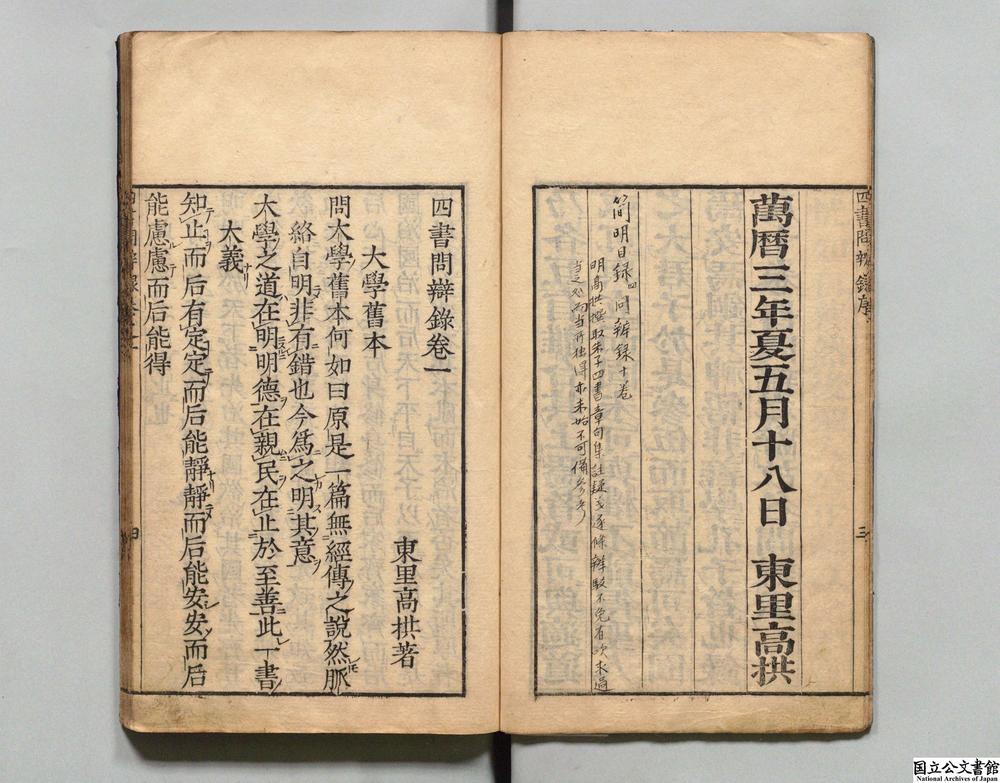 萬曆三年夏五月十八日　東里高拱
簡明目録四 問辨録十卷
明高拱撰取朱子四書章句集註疑義逐條辨駁不免有次末過
當之處而當其独得亦未始不可備參考
四書問辯錄序
三
四書問辯錄卷一
東里高拱著
大學舊本
問大學舊本何如曰原是一篇無經傳之說然脈
絡自明非有錯也今爲之明其意
大學之道在明明德在親民在止於至善此一書
大義
知止而后有定定而后能靜靜而后能安安而后
能慮慮而后能得
四
国立公文書館
National Archives of Japan